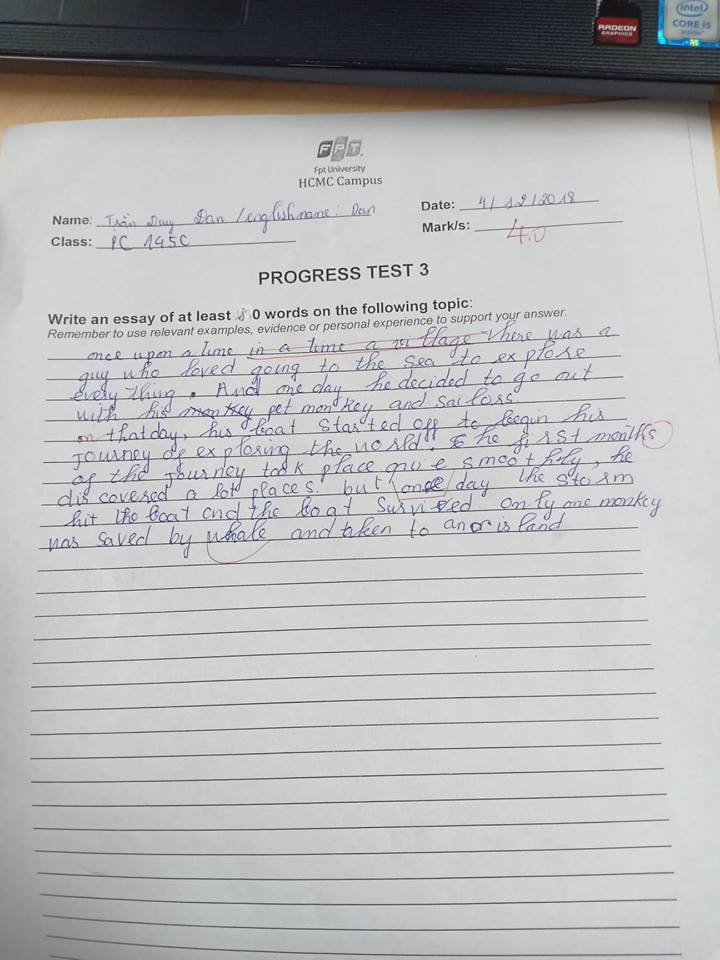 RADEON
GRAPHICS
intel
CORE i5
inside
FPT
Fpt University
HCMC Campus
Name: Trần Duy Đan / english name: Dan
Class: PC 1495C
Date: 4/12/2018
Mark/s: 4.0
PROGRESS TEST 3
Write an essay of at least 80 words on the following topic:
Remember to use relevant examples, evidence or personal experience to support your answer.
once upon a time in a time a village there was a
guy who loved going to the sea to explore
every thing. And one day he decided to go out
with his monkey pet monkey and sailors
on that day, his boat started off to begin his
journey of exploring the world. the first months
of the journey took place quite smoothly, he
discovered a lot places. but one day the storm
hit the boat and the boat survived only one monkey
was saved by whale and taken to an island